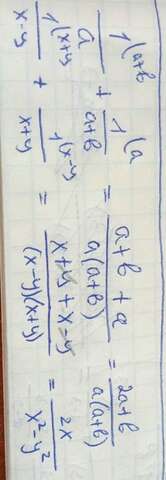 1(a+b/a + 1(a/a+b = a+b+a/a(a+b) = 2a+b/a(a+b)
1(x+y/x-y + 1(x-y/x+y = x+y+x-y/(x-y)(x+y) = 2x/x²-y²